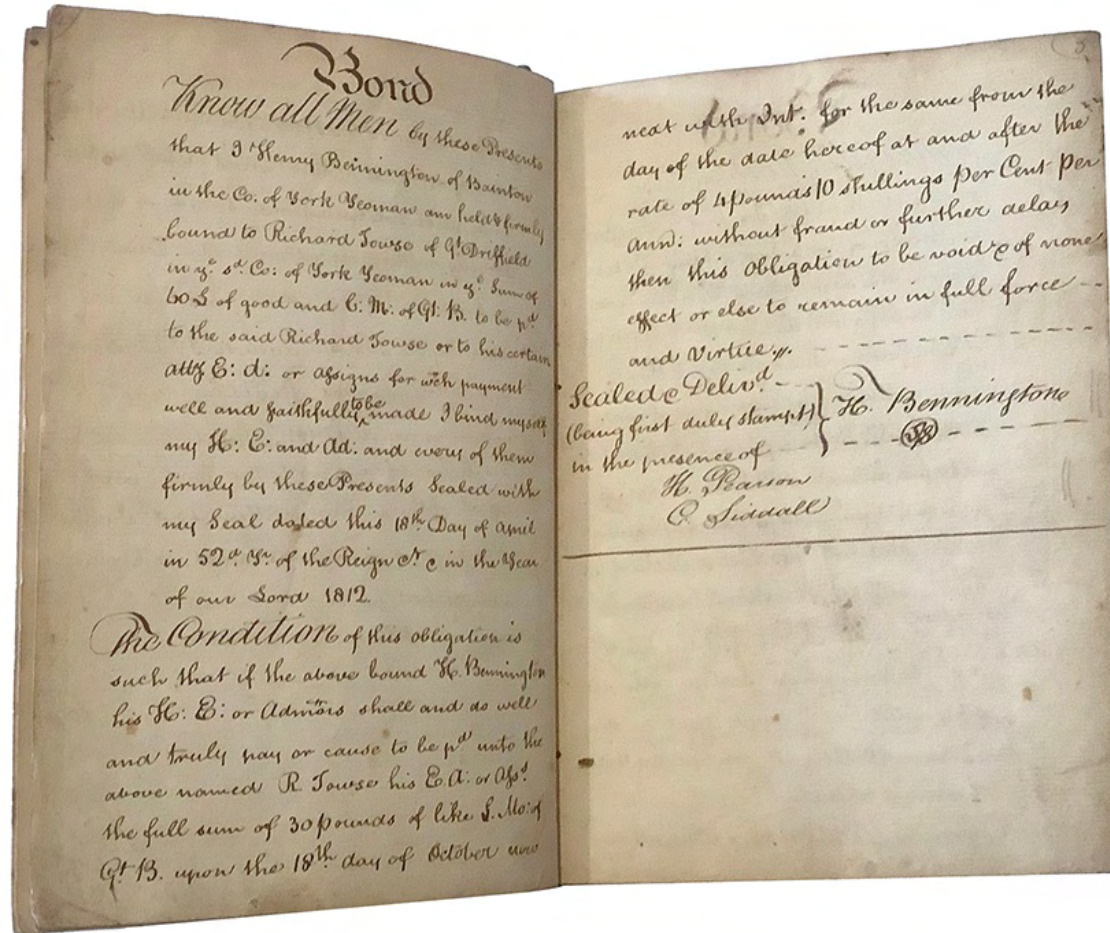 Bond
Know all Men by these Presents
that I Henry Bennington of Bainton
in the Co. of York Yeoman am held & firmly
bound to Richard Towse of Gt Driffield
in ye. sd. Co: of York Yeoman in ye. Sum of
60£ of good and C: M: of Gt: B. to be pd
to the said Richard Towse or to his certain
atty E: d: or assigns for wch payment
well and faithfully to be made I bind myself
my H: E: and Ad: and every of them
firmly by these Presents Sealed with
my Seal dated this 18th Day of April
in 52d Yr. of the Reign &c in the Year
of our Lord 1812.
The Condition of this obligation is
such that if the above bound H. Bennington
his H: E: or Admors shall and do well
and truly pay or cause to be pd unto the
above named R Towse his E. A: or Assd
the full sum of 30 pounds of like L. Mo: of
Gt B. upon the 18th day of October now
3
next with Int: for the same from the
day of the date hereof at and after the
rate of 4 pounds 10 shillings per Cent per
ann: without fraud or further delay
then this obligation to be void & of none
effect or else to remain in full force
and Virtue
Sealed & Delivd
(being first duly stampt) H. Bennington
in the presence of
H. Pearson
C. Siddall